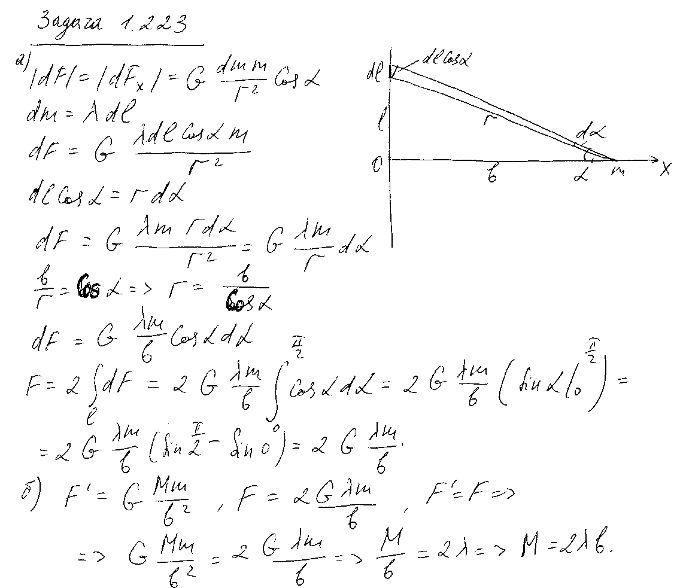 Задача 1.223
а) |dF| = |dFₓ| = G dm m / r² Cos α
dm = λ dl
dF = G λ dl Cos α m / r²
dl Cos α = r dα
dF = G λm r dα / r² = G λm / r dα
в / r = Cos α => r = в / Cos α
dF = G λm / в Cos α dα
F = 2 ∫_l dF = 2 G λm / в ∫₀^{π/2} Cos α dα = 2 G λm / в (Sin α |₀^{π/2}) =
= 2 G λm / в (Sin π/2 − Sin 0) = 2 G λm / в.
б) F' = G Mm / в², F = 2G λm / в, F' = F =>
=> G Mm / в² = 2 G λm / в => M / в = 2λ => M = 2λв.
dl
dl Cos α
l
r
dα
0
в
α
m
x